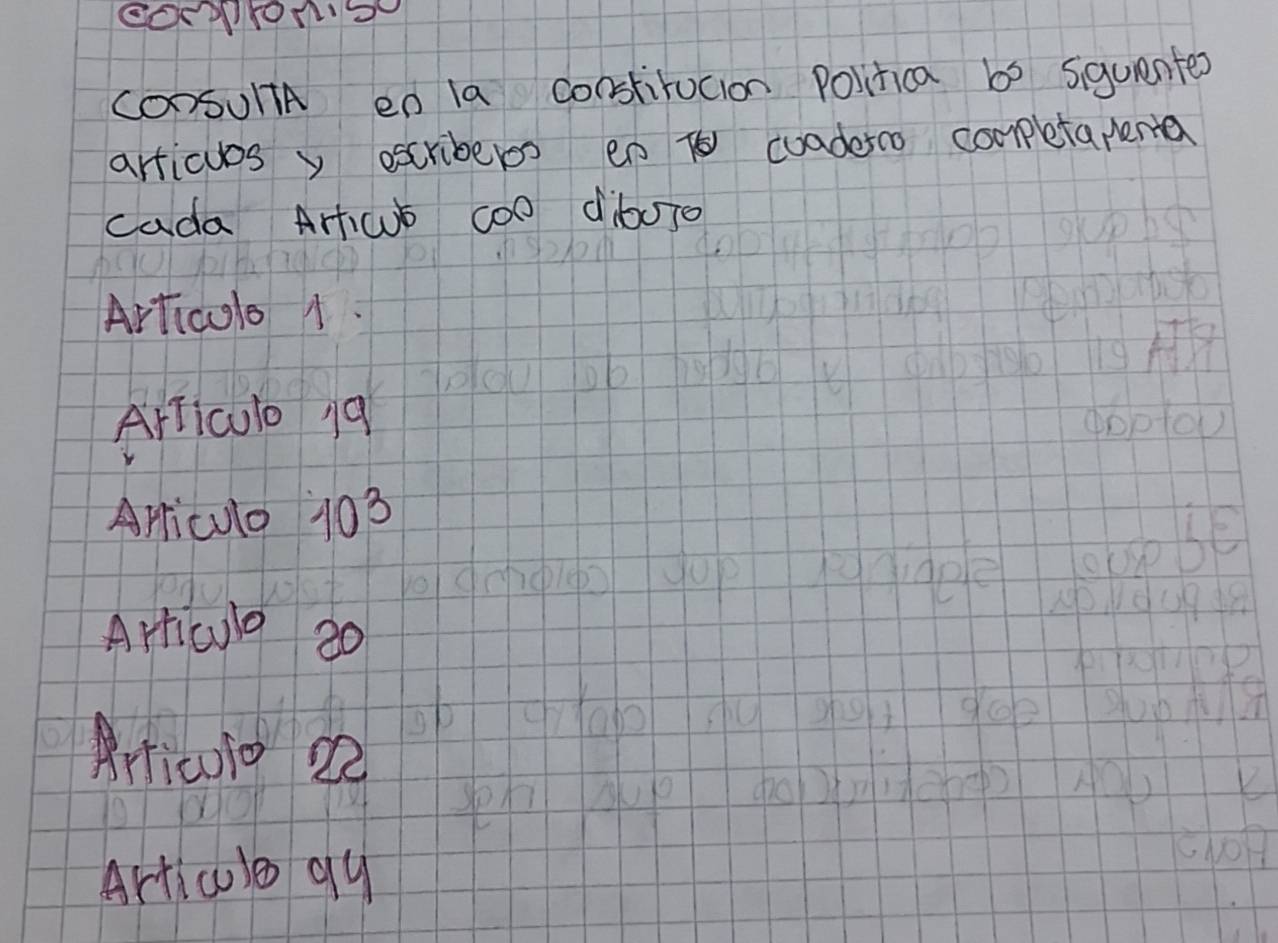 compromiso
consulTA en la constitucion Politica los siguientes
articulos y escribelos en TU cuaderno completamenta
cada Articulo con dibuJo
ArTiculo 1.
ArTiculo 19
Articulo 103
Articulo 20
Articulo 22
Articulo 94